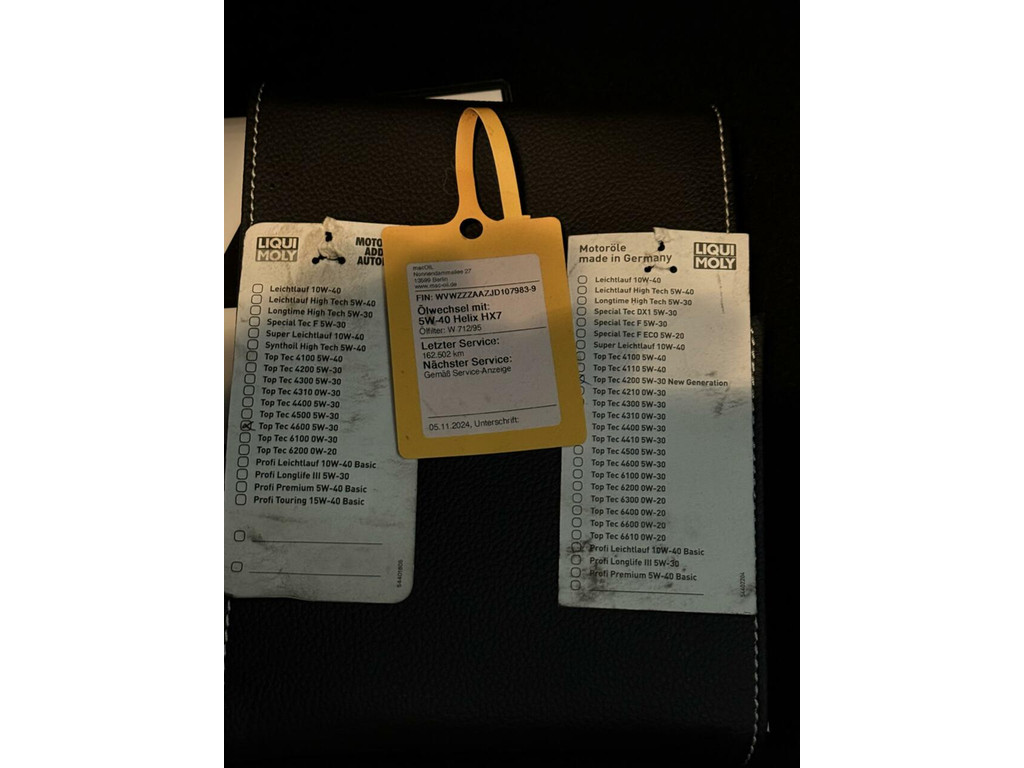 LIQUI
MOLY
MOTO
ADD
AUTO
Leichtlauf 10W-40
Leichtlauf High Tech 5W-40
Longtime High Tech 5W-30
Special Tec F 5W-30
Super Leichtlauf 10W-40
Synthoil High Tech 5W-40
Top Tec 4100 5W-40
Top Tec 4200 5W-30
Top Tec 4300 5W-30
Top Tec 4310 0W-30
Top Tec 4400 5W-30
Top Tec 4500 5W-30
Top Tec 4600 5W-30
Top Tec 6100 0W-30
Top Tec 6200 0W-20
Profi Leichtlauf 10W-40 Basic
Profi Longlife III 5W-30
Profi Premium 5W-40 Basic
Profi Touring 15W-40 Basic
macOIL
Nonnendammallee 27
13599 Berlin
www.mac-oil.de
FIN: WVWZZZAAZJD107983-9
Ölwechsel mit:
5W-40 Helix HX7
Ölfilter: W 712/95
Letzter Service:
162.502 km
Nächster Service:
Gemäß Service-Anzeige
05.11.2024, Unterschrift:
Motoröle
made in Germany
LIQUI
MOLY
Leichtlauf 10W-40
Leichtlauf High Tech 5W-40
Longtime High Tech 5W-30
Special Tec DX1 5W-30
Special Tec F 5W-30
Special Tec F ECO 5W-20
Super Leichtlauf 10W-40
Top Tec 4100 5W-40
Top Tec 4110 5W-40
Top Tec 4200 5W-30 New Generation
Top Tec 4210 0W-30
Top Tec 4300 5W-30
Top Tec 4310 0W-30
Top Tec 4400 5W-30
Top Tec 4410 5W-30
Top Tec 4500 5W-30
Top Tec 4600 5W-30
Top Tec 6100 0W-30
Top Tec 6200 0W-20
Top Tec 6300 0W-20
Top Tec 6400 0W-20
Top Tec 6600 0W-20
Top Tec 6610 0W-20
Profi Leichtlauf 10W-40 Basic
Profi Longlife III 5W-30
Profi Premium 5W-40 Basic